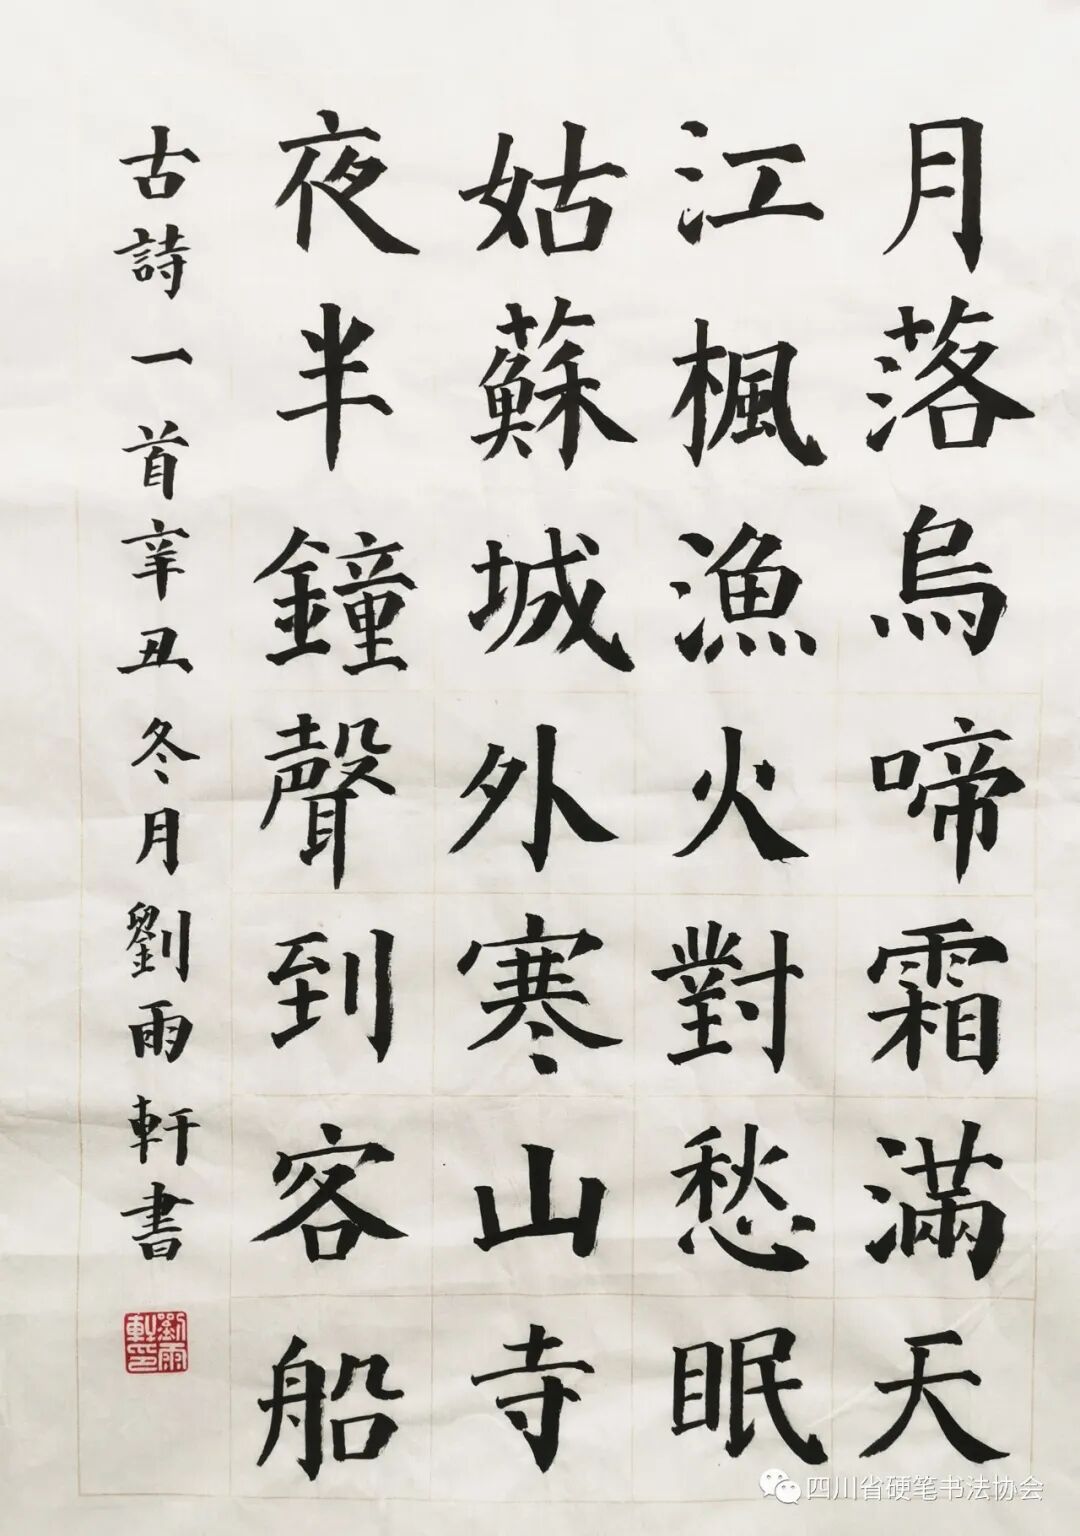 月落烏啼霜滿天
江楓漁火對愁眠
姑蘇城外寒山寺
夜半鐘聲到客船
古詩一首辛丑冬月劉雨軒書
劉雨軒印
四川省硬笔书法协会